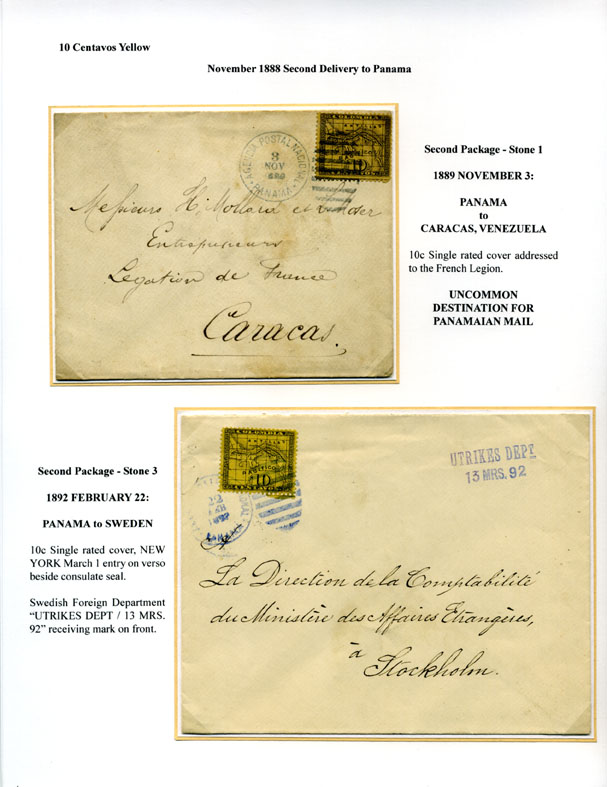 10 Centavos Yellow
November 1888 Second Delivery to Panama
COLOMBIA
AGENCIA POSTAL NACIONAL
3
NOV
PANAMA
10
Messieurs H. Mollard et
Entrepreneurs
Legation de France
Caracas.
Second Package - Stone 1
1889 NOVEMBER 3:
PANAMA
to
CARACAS, VENEZUELA
10c Single rated cover addressed
to the French Legion.
UNCOMMON
DESTINATION FOR
PANAMAIAN MAIL
Second Package - Stone 3
1892 FEBRUARY 22:
PANAMA to SWEDEN
10c Single rated cover, NEW
YORK March 1 entry on verso
beside consulate seal.
Swedish Foreign Department
“UTRIKES DEPT / 13 MRS.
92” receiving mark on front.
COLOMBIA
10
22
1892
PANAMA
UTRIKES DEPT
13 MRS. 92
La Direction de la Comptabilité
du Ministère des Affaires Etrangères,
à
Stockholm.